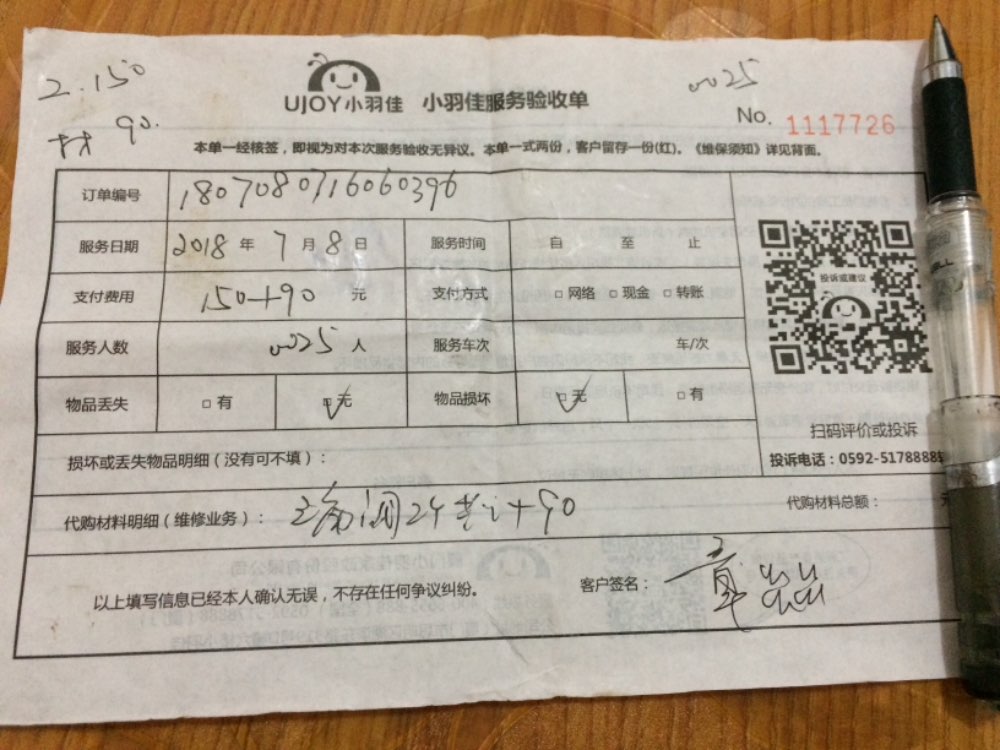 2.150
材 90.
0025
UJOY小羽佳 小羽佳服务验收单
No. 1117726
本单一经核签，即视为对本次服务验收无异议。本单一式两份，客户留存一份(红)。《维保须知》详见背面。
订单编号 1807080716060396
服务日期 2018 年 7 月 8 日 服务时间 自 至 止
投诉或建议
支付费用 150+90 元 支付方式 □网络 □现金 □转账
服务人数 0025 人 服务车次 车/次
物品丢失 □有 □无 物品损坏 □无 □有
扫码评价或投诉
损坏或丢失物品明细（没有可不填）：
投诉电话：0592-5178888
代购材料明细（维修业务）： 阀 2个 +90
代购材料总额： 元
以上填写信息已经本人确认无误，不存在任何争议纠纷。
客户签名：